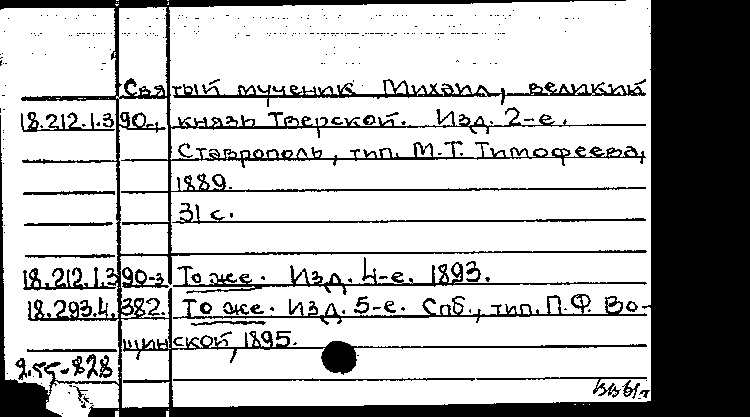 Святый мученик Михаил, великий
18.212.1.390-1 князь Тверской. Изд. 2-е.
Ставрополь, тип. М.Т. Тимофеева,
1889.
31 с.
18.212.1.390-3 То же. Изд. 4-е. 1893.
18.293.4.382. То же. Изд. 5-е. Спб., тип. П.Ф. Во-
щинской, 1895.
2.55-828